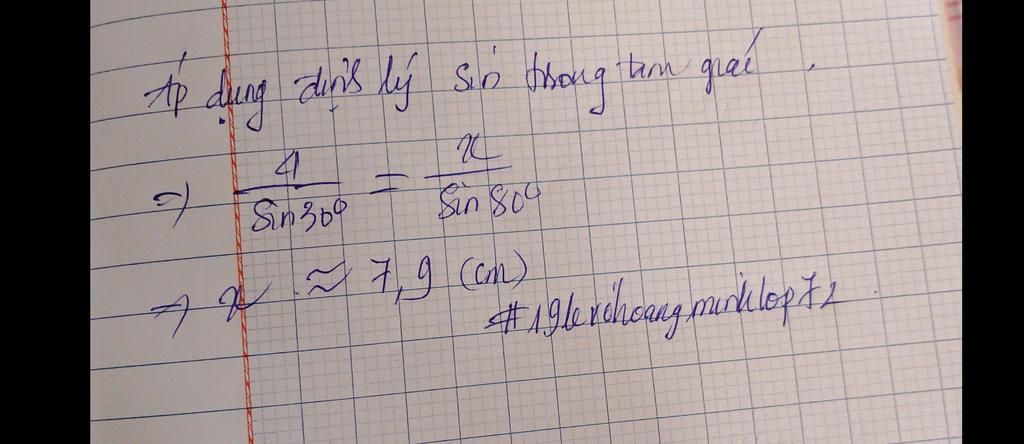 Áp dụng định lý sin trong tam giác,
=> 4/sin30° = x/sin80°
=> x ≈ 7,9 (cm)
#19levőhoangminhlop72